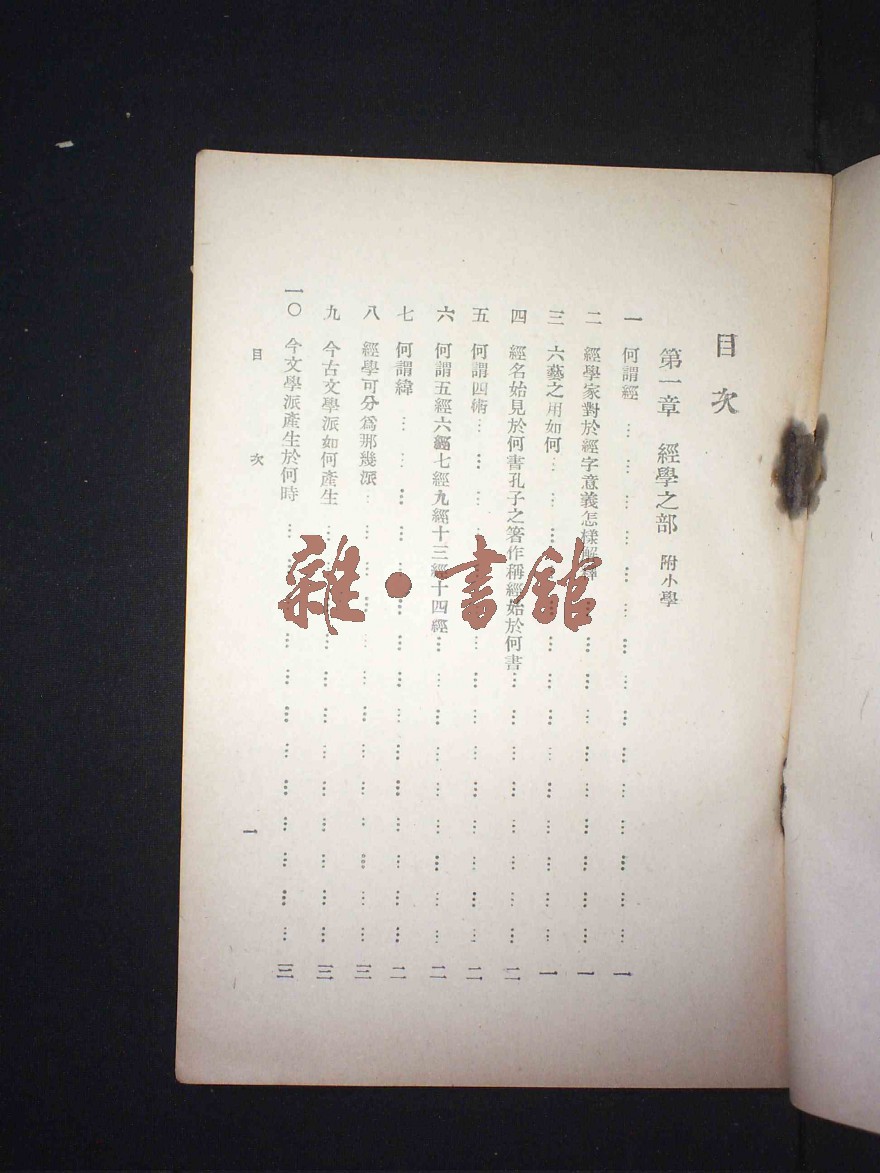 目次
第一章 經學之部 附小學
一 何謂經 … … … … … … … … … … … … … 一
二 經學家對於經字意義怎樣解釋 … … … … … … … … 一
三 六藝之用如何 … … … … … … … … … … … 一
四 經名始見於何書孔子之箸作稱經始於何書 … … … … … … 二
五 何謂四術 … … … … … … … … … … … … … 二
六 何謂五經六經七經九經十三經十四經 … … … … … … … 二
七 何謂緯 … … … … … … … … … … … … … 二
八 經學可分爲那幾派 … … … … … … … … … … … 三
九 今古文學派如何產生 … … … … … … … … … … 三
一〇 今文學派產生於何時 … … … … … … … … … … 三
目次 一
雜·書館